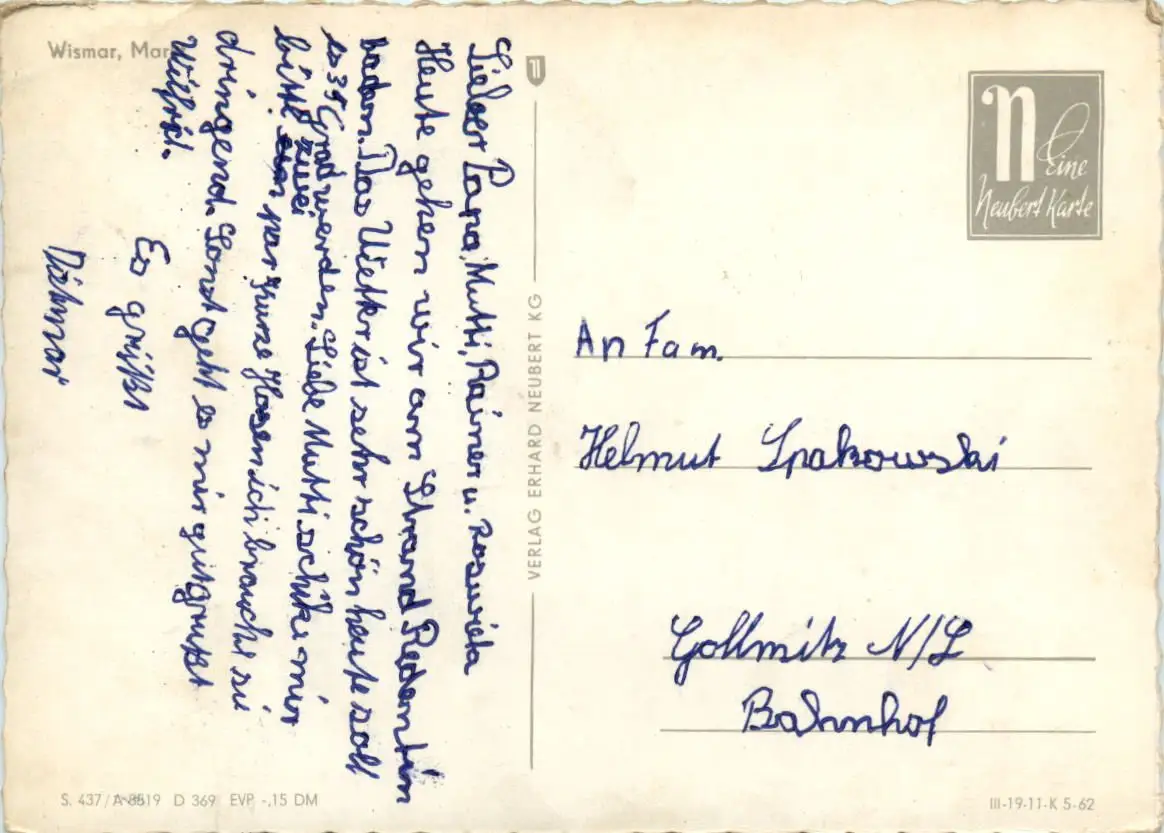 Wismar, Mar
Lieber Papa, Mutti, Rainer u. Roswieta
Heute gehen wir am Strand Redentin
baden. Das Wetter ist sehr schön heute soll
es 34 Grad werden. Liebe Mutti schike mir
bitte zwei par kurze Hosen ich brauche si
dringend. Sonst geht es mir gut grußt
Wilfrid.
Es grüßt
Dietmar
VERLAG ERHARD NEUBERT KG
n
Eine
Neubert Karte
An Fam.
Helmut Spakowski
Gollmitz N/L
Bahnhof
S. 437/A-8519 D 369 EVP -,15 DM
III-19-11-K 5-62